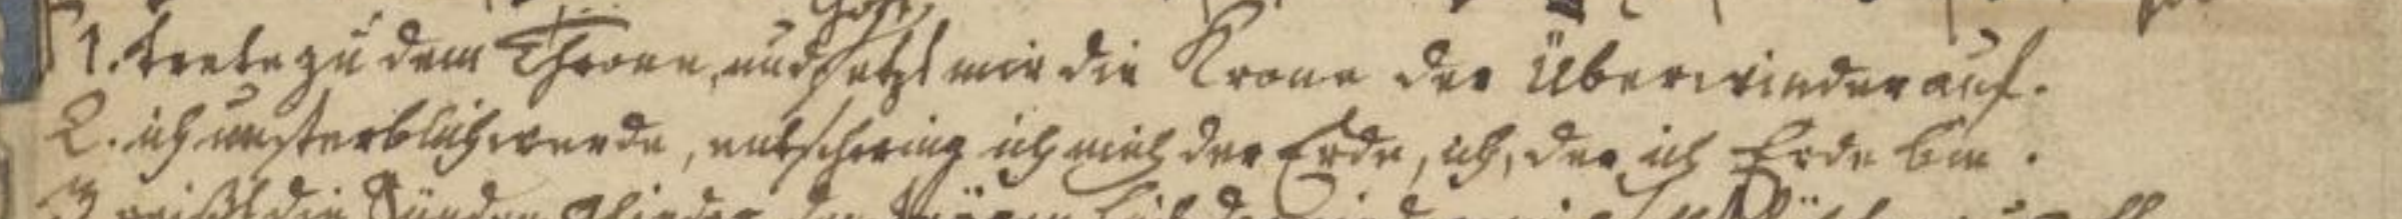 1. trete zu dem Throne, und setzt mir die Krone der Überwinder auf.
2. ich unsterblich werde, entschwing ich mich der Erde, ich, der ich Erde bin.
3 reißt die Sünden